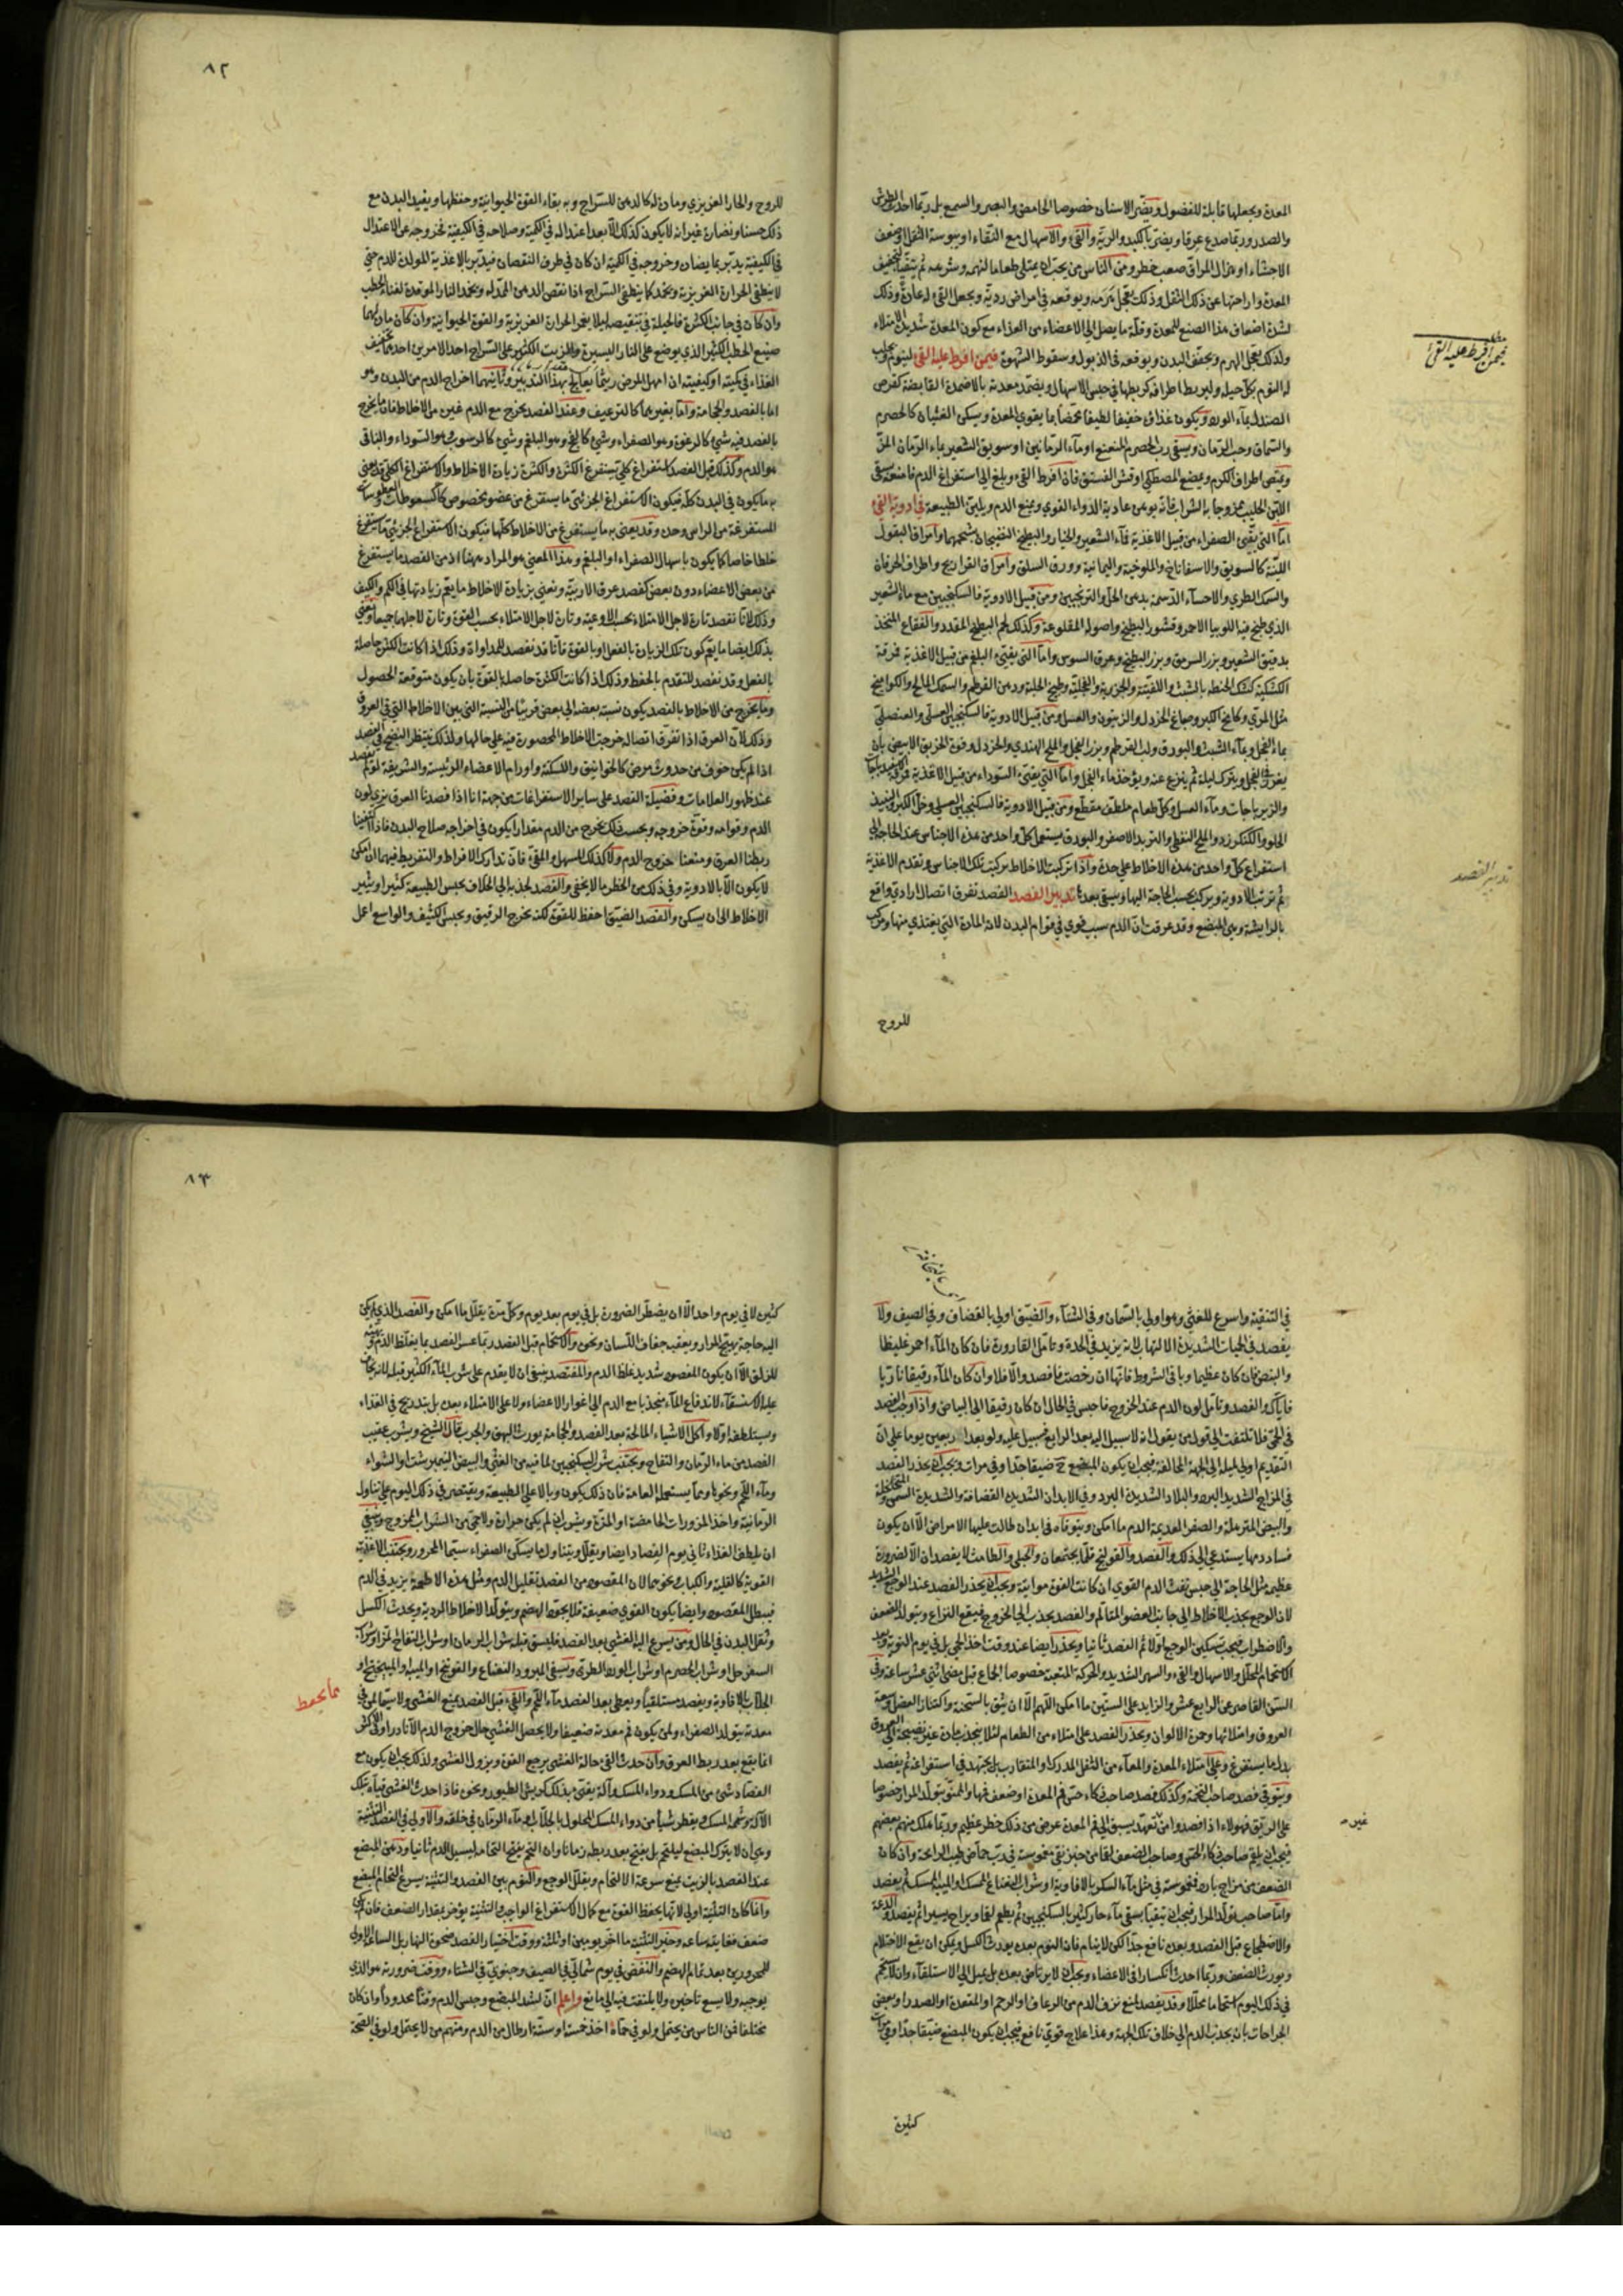 المعدة ويجعلها قابلة للفضول ويضر الاسنان خصوصا الحامض والبصر والسمع بل ربما احدث الطرش
والصدر وربما صدع عرقا ويضر بالكبد والرية والقيء والاسهال مع النقاء او يبوسة الثفل او ضعف
الاحشاء او هزال المراق صعب خطر ومن الناس من يحب ان يمتلي طعاما لنهمه وشرهه ثم يتقيا لتخفيف
المعدة واراحتها عن ذلك الثقل وذلك يعجل هرمه ويوقعه في امراض ردية ويجعل القيء له عادة وذلك
لشدة اضعاف هذا الصنع للمعدة وقلة ما يصل الي الاعضاء من الغذاء مع كون المعدة شديدة الامتلاء
ولذلك يعجل الهرم ويجفف البدن ويوقعه في الذبول وسقوط الشهوة فيمن افرط عليه القيء لينوم ويجلب
له النوم بكل حيلة وليربط اطرافه كربطها في حبس الاسهال ويضمد معدته بالاضمدة القابضة كقرص
الصندل بماء الورد ويكون غذاؤه خفيفا لطيفا محمضا بما يقوي المعدة ويسكن الغثيان كالحصرم
والسماق وحب الرمان ويسقي رب الحصرم المنعنع او ماء الرمانين او سويق الشعير بماء الرمان المز
ويمتص اطراف الكرم ويمضغ المصطكي او قشر الفستق فان افرط القيء وبلغ الي استفراغ الدم فامنعه بسقي
اللبن الحليب ممزوجا بالشراب فانه يوهن عادية الدواء القوي ويمنع الدم ويلين الطبيعة في ادوية القيء
اما التي تقيء الصفراء من قبيل الاغذية فماء الشعير والخيار والبطيخ النضيجان بشحمهما وامراق البقول
اللينة كالسويق والاسفاناخ والملوخية واليمانية وورق السلق وامراق الفراريج واطراف الخرفان
والسمك الطري والاحساء الدسمة بدهن الحل والترنجبين ومن قبيل الادوية فالسكنجبين مع ماء الشعير
الذي طبخ فيه اللوبيا الاحمر وقشور البطيخ واصوله المقلوعة وكذلك لحم البطيخ المقدد والفقاع المتخذ
بدقيق الشعير وبزر السرمق وبزر البطيخ وعرق السوس واما التي يقيء البلغم من قبيل الاغذية فمرقة
الكشكية كشك الحنطة بالشبث واللفتية والجزرية والفجلية وطبيخ الحلبة ودهن القرطم والسمك المالح والكوامخ
مثل المري وكامخ الكبر وصباغ الخردل والزيتون والعسل ومن قبيل الادوية فالسكنجبين العسلي والعنصلي
بماء الفجل وماء الشبث والبورق ولب القرطم وبزر الفجل والملح الهندي والخردل وقوة الخربق الابيض بان
يغرز في الفجل ويترك ليلة ثم ينزع عنه ويؤخذ ماء الفجل واما التي يقيء السوداء من قبيل الاغذية فمرقة
والزيرباجات وماء العسل وكل طعام ملطف مقطع ومن قبيل الادوية فالسكنجبين العسلي وخل الكبر والنبيذ
الحلو والكنكرزد والملح النفطي والتربد الاصفر والبورق يستعمل كل واحد من هذه الاجناس عند الحاجة الي
استفراغ كل واحد من هذه الاخلاط علي حدة واذا تركبت الاخلاط تركبت تلك الاجناس وتقدم الاغذية
ثم ترتب الادوية ويركب بحسب الحاجة اليها ويسقي بعدها تدبير الفصد الفصد تفرق اتصال ارادي واقع
بالرايشة وهي المبضع وقد عرفت ان الدم سبب قوي في قوام البدن لانه المادة التي يغتذي منها ومركب
للروح
مطلب
فيمن افرط عليه القيء
تدبير الفصد
٨٢
للروح والحار الغريزي ومادة له كالدهن للسراج وبه بقاء القوة الحيوانية وحفظها ويفيد البدن مع
ذلك حسنا ونضارة غير انه لا يكون كذلك الا بعد اعتداله في الكمية وصلاحه في الكيفية بخروجه عن الاعتدال
في الكيفية يدبر بما يضاده وخروجه في الكمية ان كان في طرف النقصان فيدبر بالاغذية المولدة للدم حتي
لا ينطفي الحرارة الغريزية وتخمد كما ينطفي السراج اذا نقص الدهن الممد له وتخمد النار الموقدة لفناء الحطب
وان كان في جانب الكثرة فالحيلة في تنقيصه ليلا يغمر الحرارة الغريزية والقوة الحيوانية وان كان مادة لهما
صنيع الحطب الكثير الذي يوضع علي النار اليسيرة والزيت الكثير علي السراج احد الامرين احدهما تخفيف
الغذاء في كميته او كيفيته ان امهل المرض ريثما يعالج بهذا التدبير وثانيهما اخراج الدم من البدن وهو
اما بالفصد والحجامة واما بغيرهما كالترعيف وعند الفصد يخرج مع الدم غيره من الاخلاط فان ما يخرج
بالفصد فيه شيء كالرغوة وهو الصفراء وشيء كالمخ وهو البلغم وشيء كالرسوب وهو السوداء والباقي
هو الدم وكذلك قيل الفصد استفراغ كلي يستفرغ الكثرة والكثرة زيادة الاخلاط والاستفراغ الكلي قد يعني
به ما يكون في البدن كله فيكون الاستفراغ الجزئي ما يستفرغ من عضو مخصوص كالسعوطات
المستفرغة من الراس وحده وقد يعني به ما يستفرغ من الاخلاط كلها فيكون الاستفراغ الجزئي ما يستفرغ
خلطا خاصا كما يكون باسهال الصفراء او البلغم وهذا المعني هو المراد ههنا اذ من الفصد ما يستفرغ
من بعض الاعضاء دون بعض كفصد عرق الاربية ونعني بزيادة الاخلاط ما يعم زيادتها في الكم والكيف
وذلك لانا نفصد تارة لاجل الامتلاء بحسب الاوعية وتارة لاجل الامتلاء بحسب القوة وتارة لاجلهما جميعا ونعني
بذلك ايضا ما يعم كون تلك الزيادة بالفعل او بالقوة فانا قد نفصد للمداواة وذلك اذا كانت الكثرة حاصلة
بالفعل وقد نفصد للتقدم بالحفظ وذلك اذا كانت الكثرة حاصلة بالقوة بان يكون متوقعة الحصول
وما يخرج من الاخلاط بالفصد يكون نسبة بعضه الي بعض قريبا من النسبة التي بين الاخلاط التي في العروق
وذلك لان العرق اذا تفرق اتصاله خرجت الاخلاط المحصورة فيه علي حالها ولذلك ينتظر النضج في الفصد
اذا لم يكن خوف من حدوث مرض كالخوانيق والسكتة واورام الاعضاء الرئيسة والشريفة لو لم نفصد
عند ظهور العلامات وفضيلة الفصد علي ساير الاستفراغات من جهة انا اذا فصدنا العرق نري لون
الدم وقوامه وقوة خروجه وبحسب ذلك يخرج من الدم مقدارا يكون في اخراجه صلاح البدن فاذا اكتفينا
ربطنا العرق ومنعنا خروج الدم ولا كذلك المسهل والمقيء فان تدارك الافراط والتفريط فيهما ان امكن
لا يكون الا بالادوية وفي ذلك من الخطر ما لا يخفي والفصد لجذبه الي الخلاف يحبس الطبيعة كثيرا ويثير
الاخلاط الي ان يسكن والفصد الضيق احفظ للقوة لكنه يخرج الرقيق ويحبس الكثيف والواسع اعمل
في التنقية واسرع للغشي وهو اولي بالسمان وفي الشتاء والضيق اولي بالقضاف وفي الصيف ولا
يفصد في الحميات الشديدة الالتهاب لانه يزيد في الحدة وتامل القارورة فان كان الماء احمر غليظا
والنبض فان كان عظيما وباقي الشروط فاتها ان رخصت فافصد والا فلا وان كان الماء رقيقا ناريا
فاياك والفصد وتامل لون الدم عند الخروج فاحبس في الحال ان كان رقيقا الي البياض واذا وجب الفصد
في الحمي فلا تلتفت الي قول من يقول انه لا سبيل اليه بعد الرابع فسبيل عليه ولو بعد الاربعين يوما علي ان
التقديم اولي لميله الي الجهة المخالفة فيجب ان يكون المبضع ضيقا جدا وفي مرات ويجب ان يحذر الفصد
في المزاج الشديد البرد والبلاد الشديدة البرد وفي الابدان الشديدة القضافة والشديدة السمن
والبيض المترهلة والصفر العديمة الدم ما امكن ويتوقاه في ابدان طالت عليها الامراض الا ان يكون
فساد دمها يستدعي الي ذلك والفصد والقولنج قلما يجتمعان والحبلي والطامث لا يفصدان الا لضرورة
عظيمة مثل الحاجة الي حبس نفث الدم القوي ان كانت القوة مواتية ويجب ان يحذر الفصد عند الوجع الشديد
لان الوجع يجذب الاخلاط الي جانب العضو المتالم والفصد يجذب الي الخروج فيقع النزاع ويتولد الضعف
والاضطراب فيجب تسكين الوجع اولا ثم الفصد ثانيا ويحذر ايضا عند وقت اخذ الحمي بل في يوم النوبة وبعد
الاستحمام المحلل والاسهال والقيء والسهر الشديد والحركة المتعبة خصوصا الجماع قبل مضي اثني عشر ساعة وفي
السن القاصر عن الرابع عشر والزايد علي الستين ما امكن اللهم الا ان يثق بالسحنة واكتناز العضل وسعة
العروق وامتلائها وحمرة الالوان ويحذر الفصد علي امتلاء من الطعام لئلا ينجذب مادة غير نضيجة الي العروق
بدل ما يستفرغ وعلي امتلاء المعدة والمعاء من الثفل المدرك والمتقارب بل يجتهد في استفراغه ثم يفصد
ويتوقي فصد صاحب التخمة وكذلك فصد صاحب ذكاء حس فم المعدة او ضعف فمها والممنو بتولد المرار خصوصا
علي الريق فهولاء اذا فصدوا من تعهد يسبق الي فم المعدة عرض من ذلك خطر عظيم وربما هلك منهم بعضهم
فيجب ان يلقم صاحب ذكاء الحس وصاحب الضعف لقما من خبز نقي مغموسة في رب حماض طيب الرايحة وان كان
الضعف من مزاج بارد فمغموسة في مثل ماء السكر بالافاوية او شراب النعناع الممسك او الميبة الممسكة ثم يفصد
واما صاحب تولد المرار فيجب ان يتقيا بسقي ماء حار كثير بالسكنجبين ثم يطعم لقما ويراح يسيرا ثم يفصد والدعة
والاضطجاع قبل الفصد وبعده نافع جدا لكن لا ينام فان النوم بعده يورث الكسل ويمكن ان يقع الاحتلام
ويورث الضعف وربما احدث انكسارا في الاعضاء ويجب ان لا يرتاض بعده بل يميل الي الاستلقاء وان لا يستحم
في ذلك اليوم استحماما محللا وقد يفصد لمنع نزف الدم من الرعاف او الرحم او المقعدة او الصدر او بعض
الجراحات بان يجذب الدم الي خلاف تلك الجهة وهذا علاج قوي نافع فيجب ان يكون المبضع ضيقا جدا وفي مرات
كثيرة
غيره
٨٣
كثيرة لا في يوم واحد الا ان يضطر الضرورة بل في يوم بعد يوم وكل مرة يقلل ما امكن والفصد الذي لم يكن
اليه حاجة يهيج المرار ويعقبه جفاف اللسان ونحوه والاستحمام قبل الفصد ربما عسر الفصد بما يغلظ الدم ويهيئه
للزلق الا ان يكون المقصود شديد غلظ الدم والمفتصد ينبغي ان لا يقدم علي شرب الماء الكثير قبله لانه يخاف
عليه الاستسقاء لاندفاع الماء منجذبا مع الدم الي اغوار الاعضاء ولا علي الامتلاء بعده بل يتدرج في الغذاء
ويستلطفه اولا واكل الاشياء المالحة بعد الفصد والحجامة يورث البهق والجرب قال الشيخ ويشرب عقيب
الفصد من ماء الرمان والتفاح ويجتنب شراب السكنجبين لما فيه من الغشي والبيض النيمبرشت والشواء
وماء اللحم ونحوها وهما يستعمله العامة فان ذلك يكون وبالا علي الطبيعة ويقتصر في ذلك اليوم علي تناول
الرمانية واخذ المزورات الحامضة او المزة ويشرب ان لم يكن حرارة ولا حمي من الشراب الممزوج وينبغي
ان يلطف الغذاء ثاني يوم الفصاد ايضا ويقلل ويتناول ما يسكن الصفراء سيما المحرور ويجتنب الاغذية
القوية كالقلية والكباب ونحوهما لان المقصود من الفصد تقليل الدم ومثل هذه الاطعمة يزيد في الدم
فيبطل المقصود وايضا يكون القوي ضعيفة فلا يجود الهضم ويتولد الاخلاط الردية ويحدث الكسل
وثقل البدن في الحال ومن يسرع اليه الغشي بعد الفصد فليسق قبله شراب الرمان او شراب التفاح المز او شراب
السفرجل او شراب الحصرم او شراب الورد الطري ويسقي المبرود النعناع والفوتنج او الميبة والميبختج او
الجلاب بالافاوية ويفصد مستلقيا ويعطي بعد الفصد ماء اللحم والقيء قبل الفصد يمنع الغشي ولا سيما لمن في
معدته يتولد الصفراء ولمن يكون فم معدته ضعيفا ولا يحصل الغشي حال خروج الدم الا نادرا والاكثر
انما يقع بعد ربط العرق وان حدث القيء حالة الغشي يرجع القوة ويزول الغشي ولذلك يجب ان يكون مع
الفصاد شيء من المسك ودواء المسك وآلة يقيء بذلك كريش الطيور ونحوه فاذا حدث الغشي قياه بتلك
الآلة وشمه المسك ويقطر شيئا من دواء المسك المحلول بالجلاب او ماء الرمان في حلقه والاولي في الفصد التثنية
وهي ان لا يترك المبضع ليلتحم بل يفتح بعد ربطه زمانا وان التحم يفتح التحامه ليسيل الدم ثانيا ودهن المبضع
عند الفصد بالزيت يمنع سرعة الالتحام ويقلل الوجع والنوم بين الفصد والتثنية يسرع التحام المبضع
وانما كان التثنية اولي لانها يحفظ القوة مع كمال الاستفراغ الواجب والتثنية يؤخر بمقدار الضعف فان لم يكن
ضعف فغايته ساعة وخير التثنية ما اخر يومين او ثلثة ووقت اختيار الفصد ضحوة النهار بل الساعة الاولي
للمحرورين بعد تمام الهضم والنفض في يوم شمالي في الصيف وجنوبي في الشتاء ووقت ضرورته هو الذي
يوجبه ولا يسع تاخيره ولا يلتفت فيه الي مانع واعلم ان لشد المبضع وحبس الدم وقتا محدودا وان كان
مختلفا فمن الناس من يحتمل ولو في حماه اخذ خمسة او ستة ارطال من الدم ومنهم من لا يحتمل ولو في الصحة
مما يحفظ